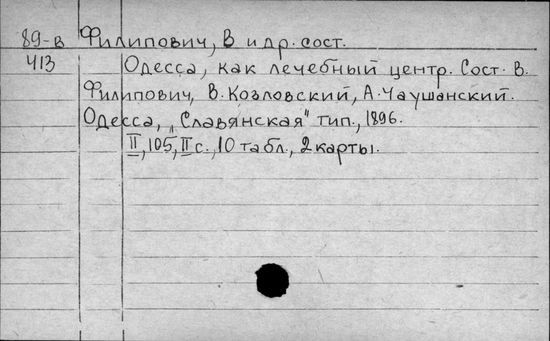 89-в Филипович, В и др. сост.
413 Одесса, как лечебный центр. Сост. В.
Филипович, В. Козловский, А. Чаушанский.
Одесса, „Славянская" тип., 1896.
II, 105, II с., 10 табл., 2 карты.